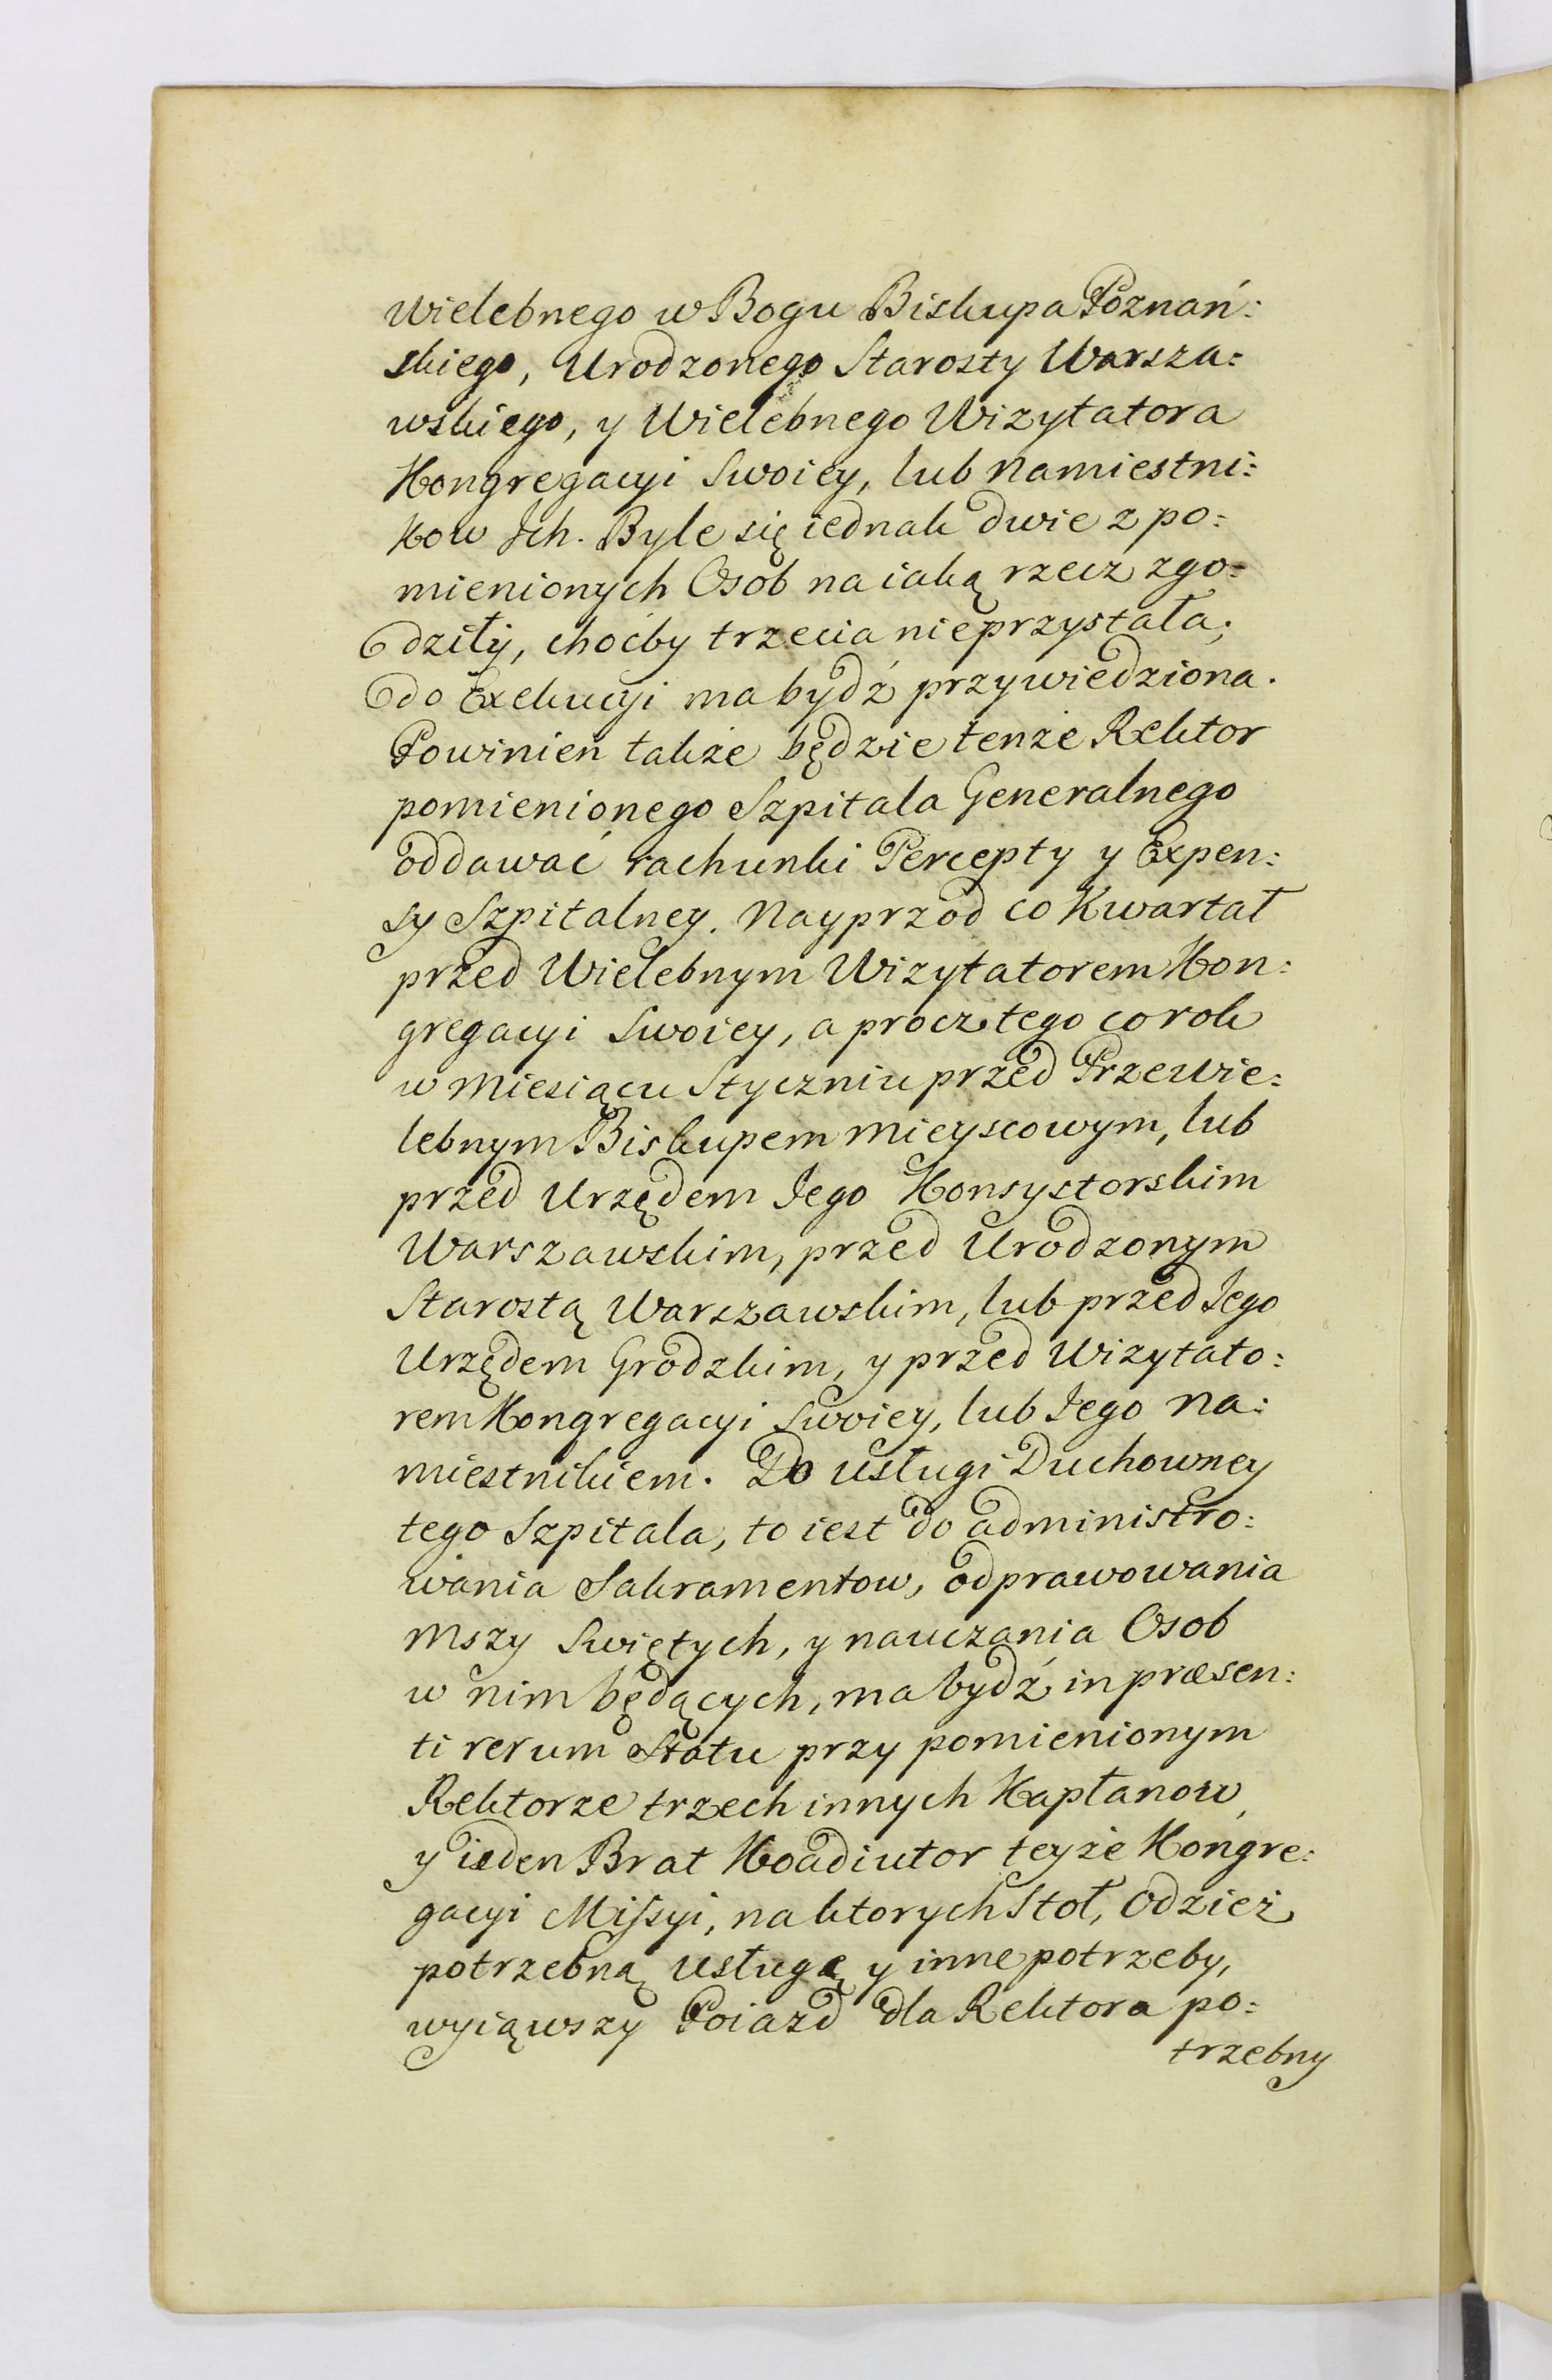 wielebnego w Bogu Biskupa Poznań:
skiego, Urodzonego Starosty Warsza:
wskiego, y Wielebnego Wizytatora
Kongregacyi Swoiey, lub Namiestni:
kow Ich. Byle się iednak dwie z po:
mienionych Osob na iaką rzecz zgo:
dziły, choćby trzecia nieprzystała;
do Exekucyi ma bydź przywiedziona.
Powinien także będzie tenże Rektor
pomienionego Szpitala Generalnego
oddawać rachunki Percepty y Expen:
sy Szpitalney. Nayprzod co Kwartał
przed Wielebnym Wizytatorem Kon:
gregacyi Swoiey, a procz tego co rok
w Miesiącu Styczniu przed Przewie:
lebnym Biskupem mieyscowym, lub
przed Urzędem Jego Konsystorskim
Warszawskim, przed Urodzonym
Starostą Warszawskim, lub przed Jego
Urzędem Grodzkim, y przed Wizytato:
rem Kongregacyi Swoiey, lub Jego Na:
miestnikiem. Do usługi Duchowney
tego Szpitala, to iest do administro:
wania Sakramentow, odprawowania
Mszy Swiętych, y nauczania Osob
w nim będących, ma bydź in præsen:
ti rerum Statu przy pomienionym
Rektorze trzech innych Kapłanow,
y ieden Brat Koadiutor teyże Kongre:
gacyi Missyi, na ktorych Stoł, Odzież,
potrzebną usługę y inne potrzeby,
wyiąwszy Poiazd dla Rektora po:
trzebny